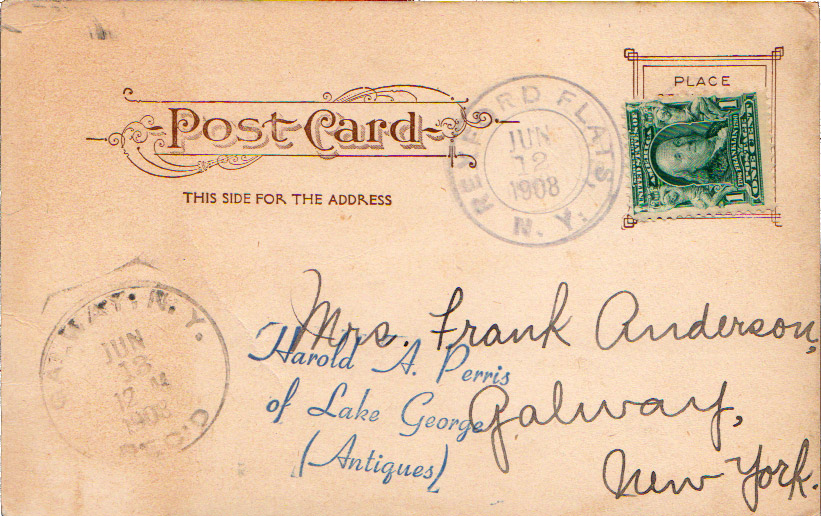 PLACE
Post Card
THIS SIDE FOR THE ADDRESS
REXFORD FLATS,
JUN
12
1908
N. Y.
1 1
ONE CENT
GALWAY, N. Y.
JUN
13
12 M
1908
REC'D
Mrs. Frank Anderson,
Galway,
New York.
Harold A. Perris
of Lake George
(Antiques)